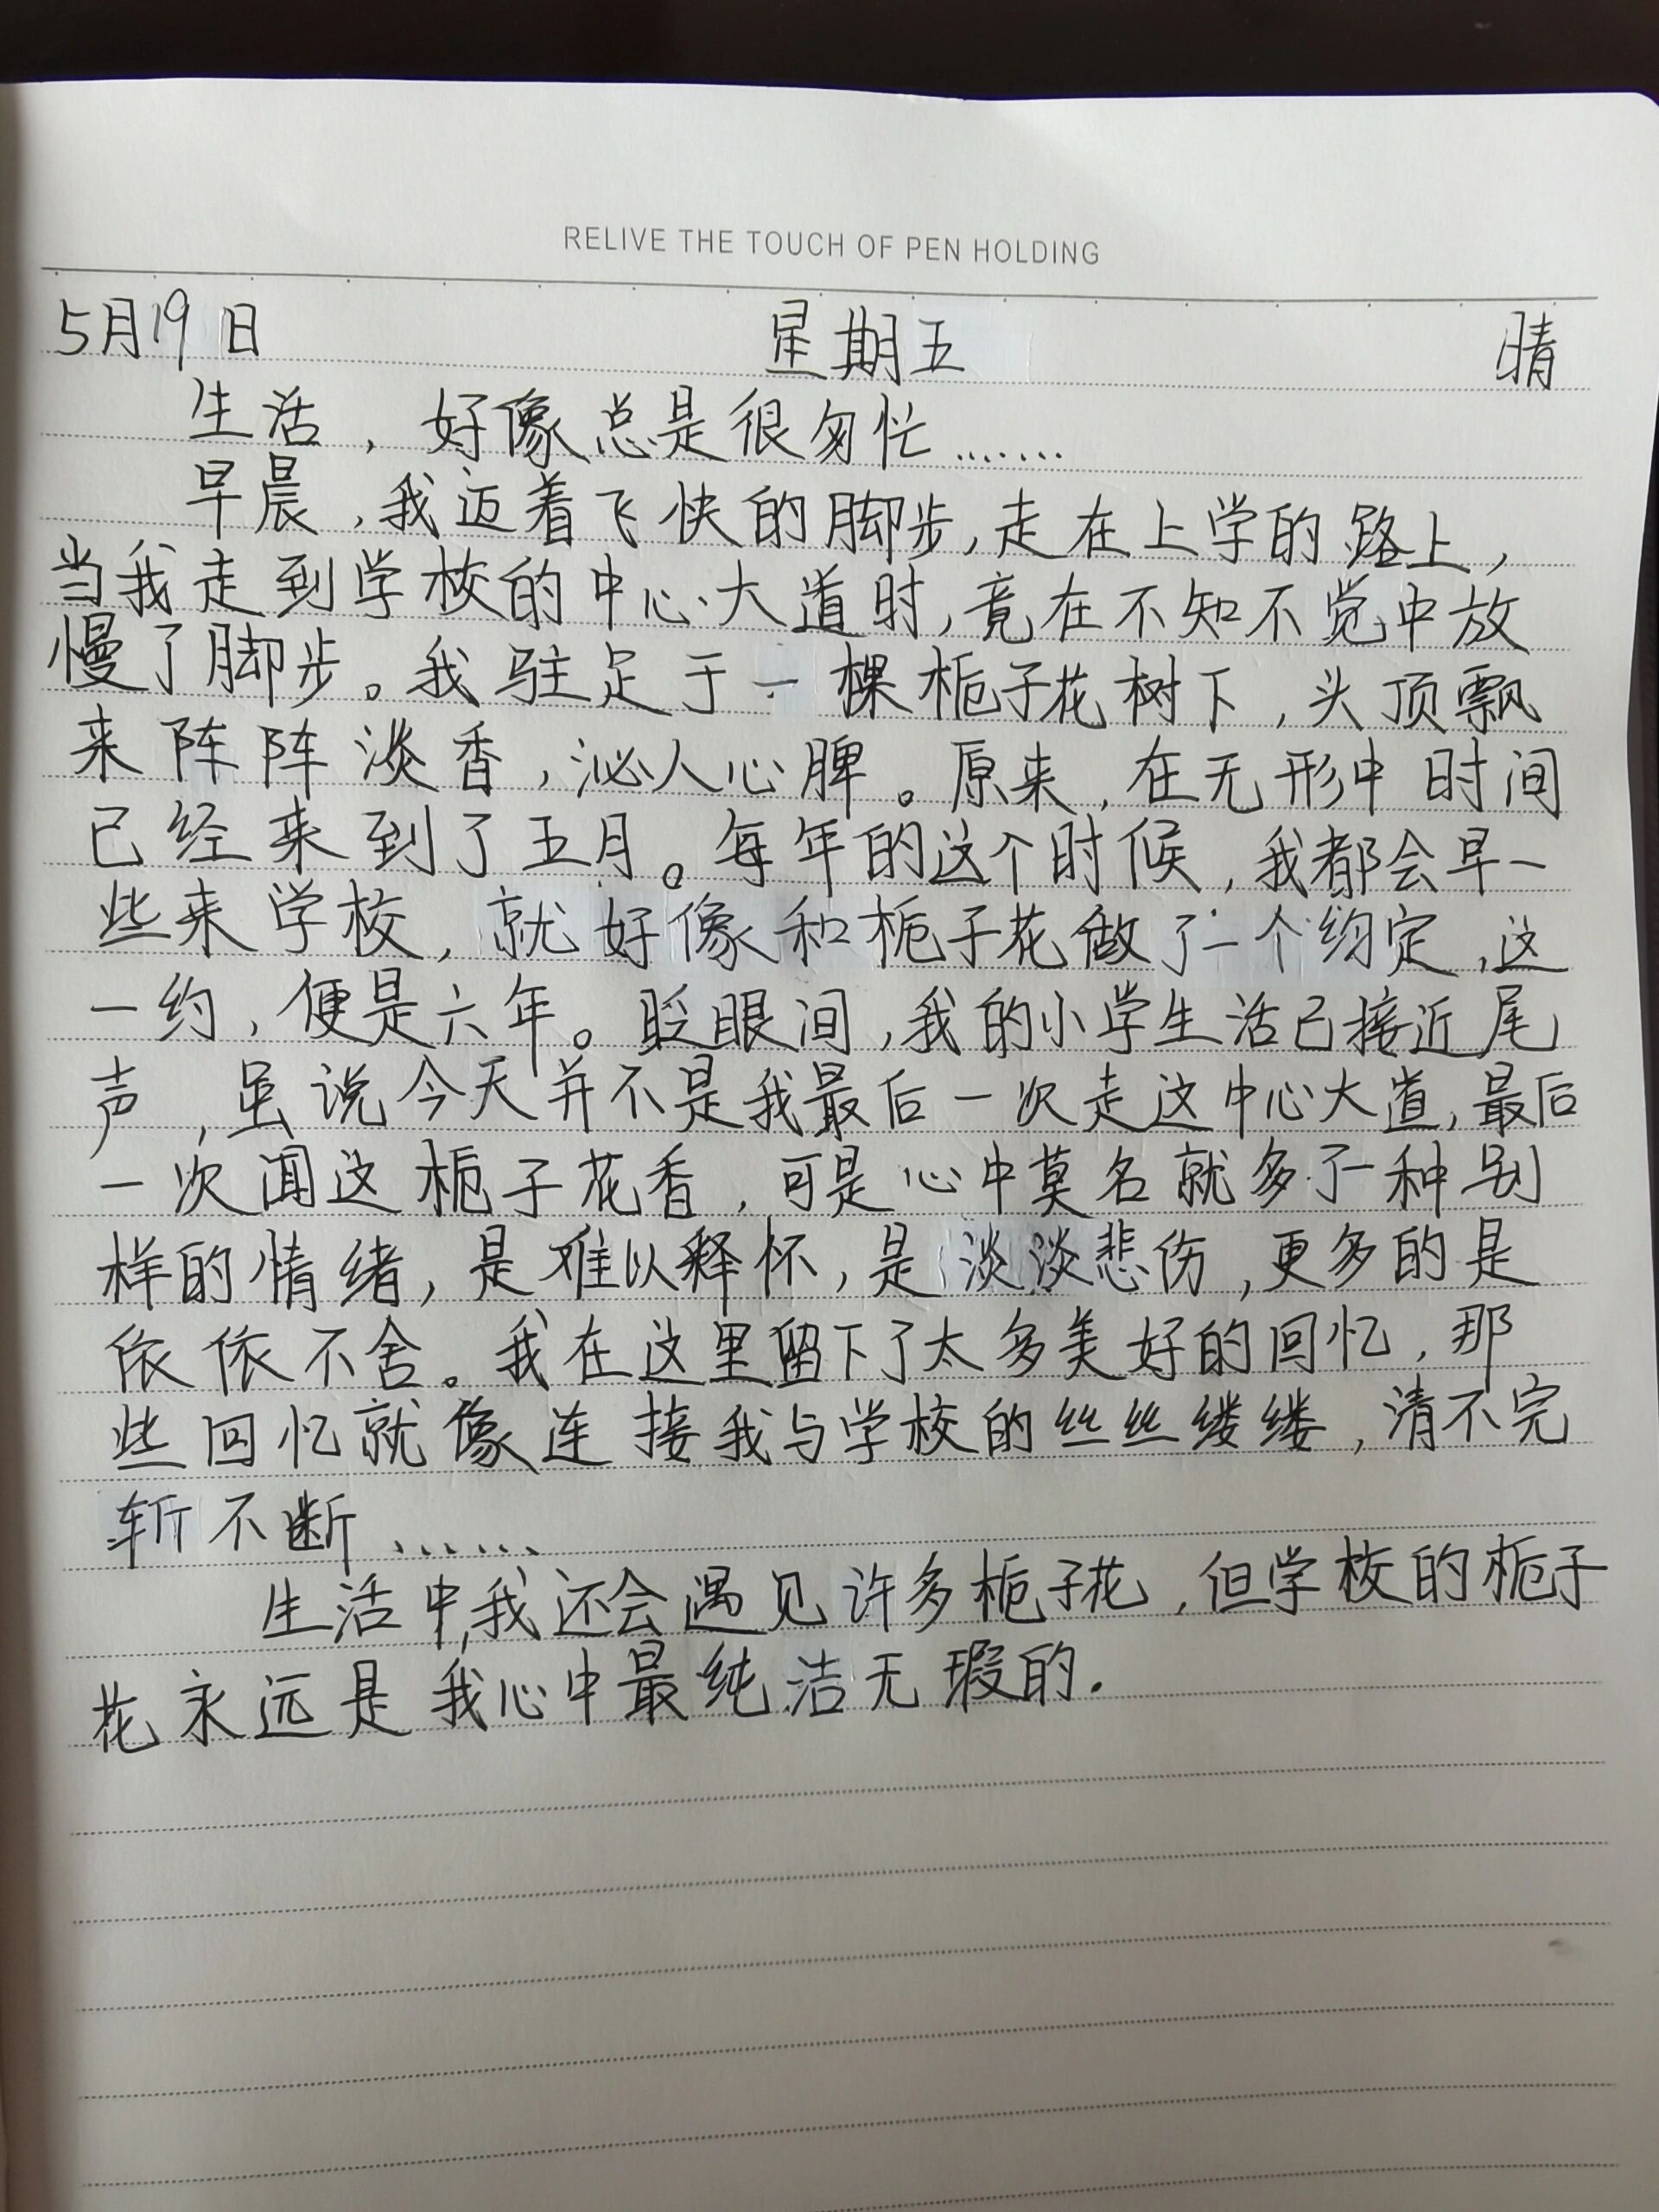 RELIVE THE TOUCH OF PEN HOLDING
5月19日 星期五 晴
生活，好像总是很匆忙.......
早晨，我迈着飞快的脚步，走在上学的路上，
当我走到学校的中心大道时，竟在不知不觉中放
慢了脚步。我驻足于一棵栀子花树下，头顶飘
来阵阵淡香，沁人心脾。原来，在无形中时间
已经来到了五月。每年的这个时候，我都会早一
些来学校，就好像和栀子花做了一个约定，这
一约，便是六年。眨眼间，我的小学生活已接近尾
声，虽说今天并不是我最后一次走这中心大道，最后
一次闻这栀子花香，可是心中莫名就多了一种别
样的情绪，是难以释怀，是淡淡悲伤，更多的是
依依不舍。我在这里留下了太多美好的回忆，那
些回忆就像连接我与学校的丝丝缕缕，清不完
斩不断......
生活中，我还会遇见许多栀子花，但学校的栀子
花永远是我心中最纯洁无瑕的.